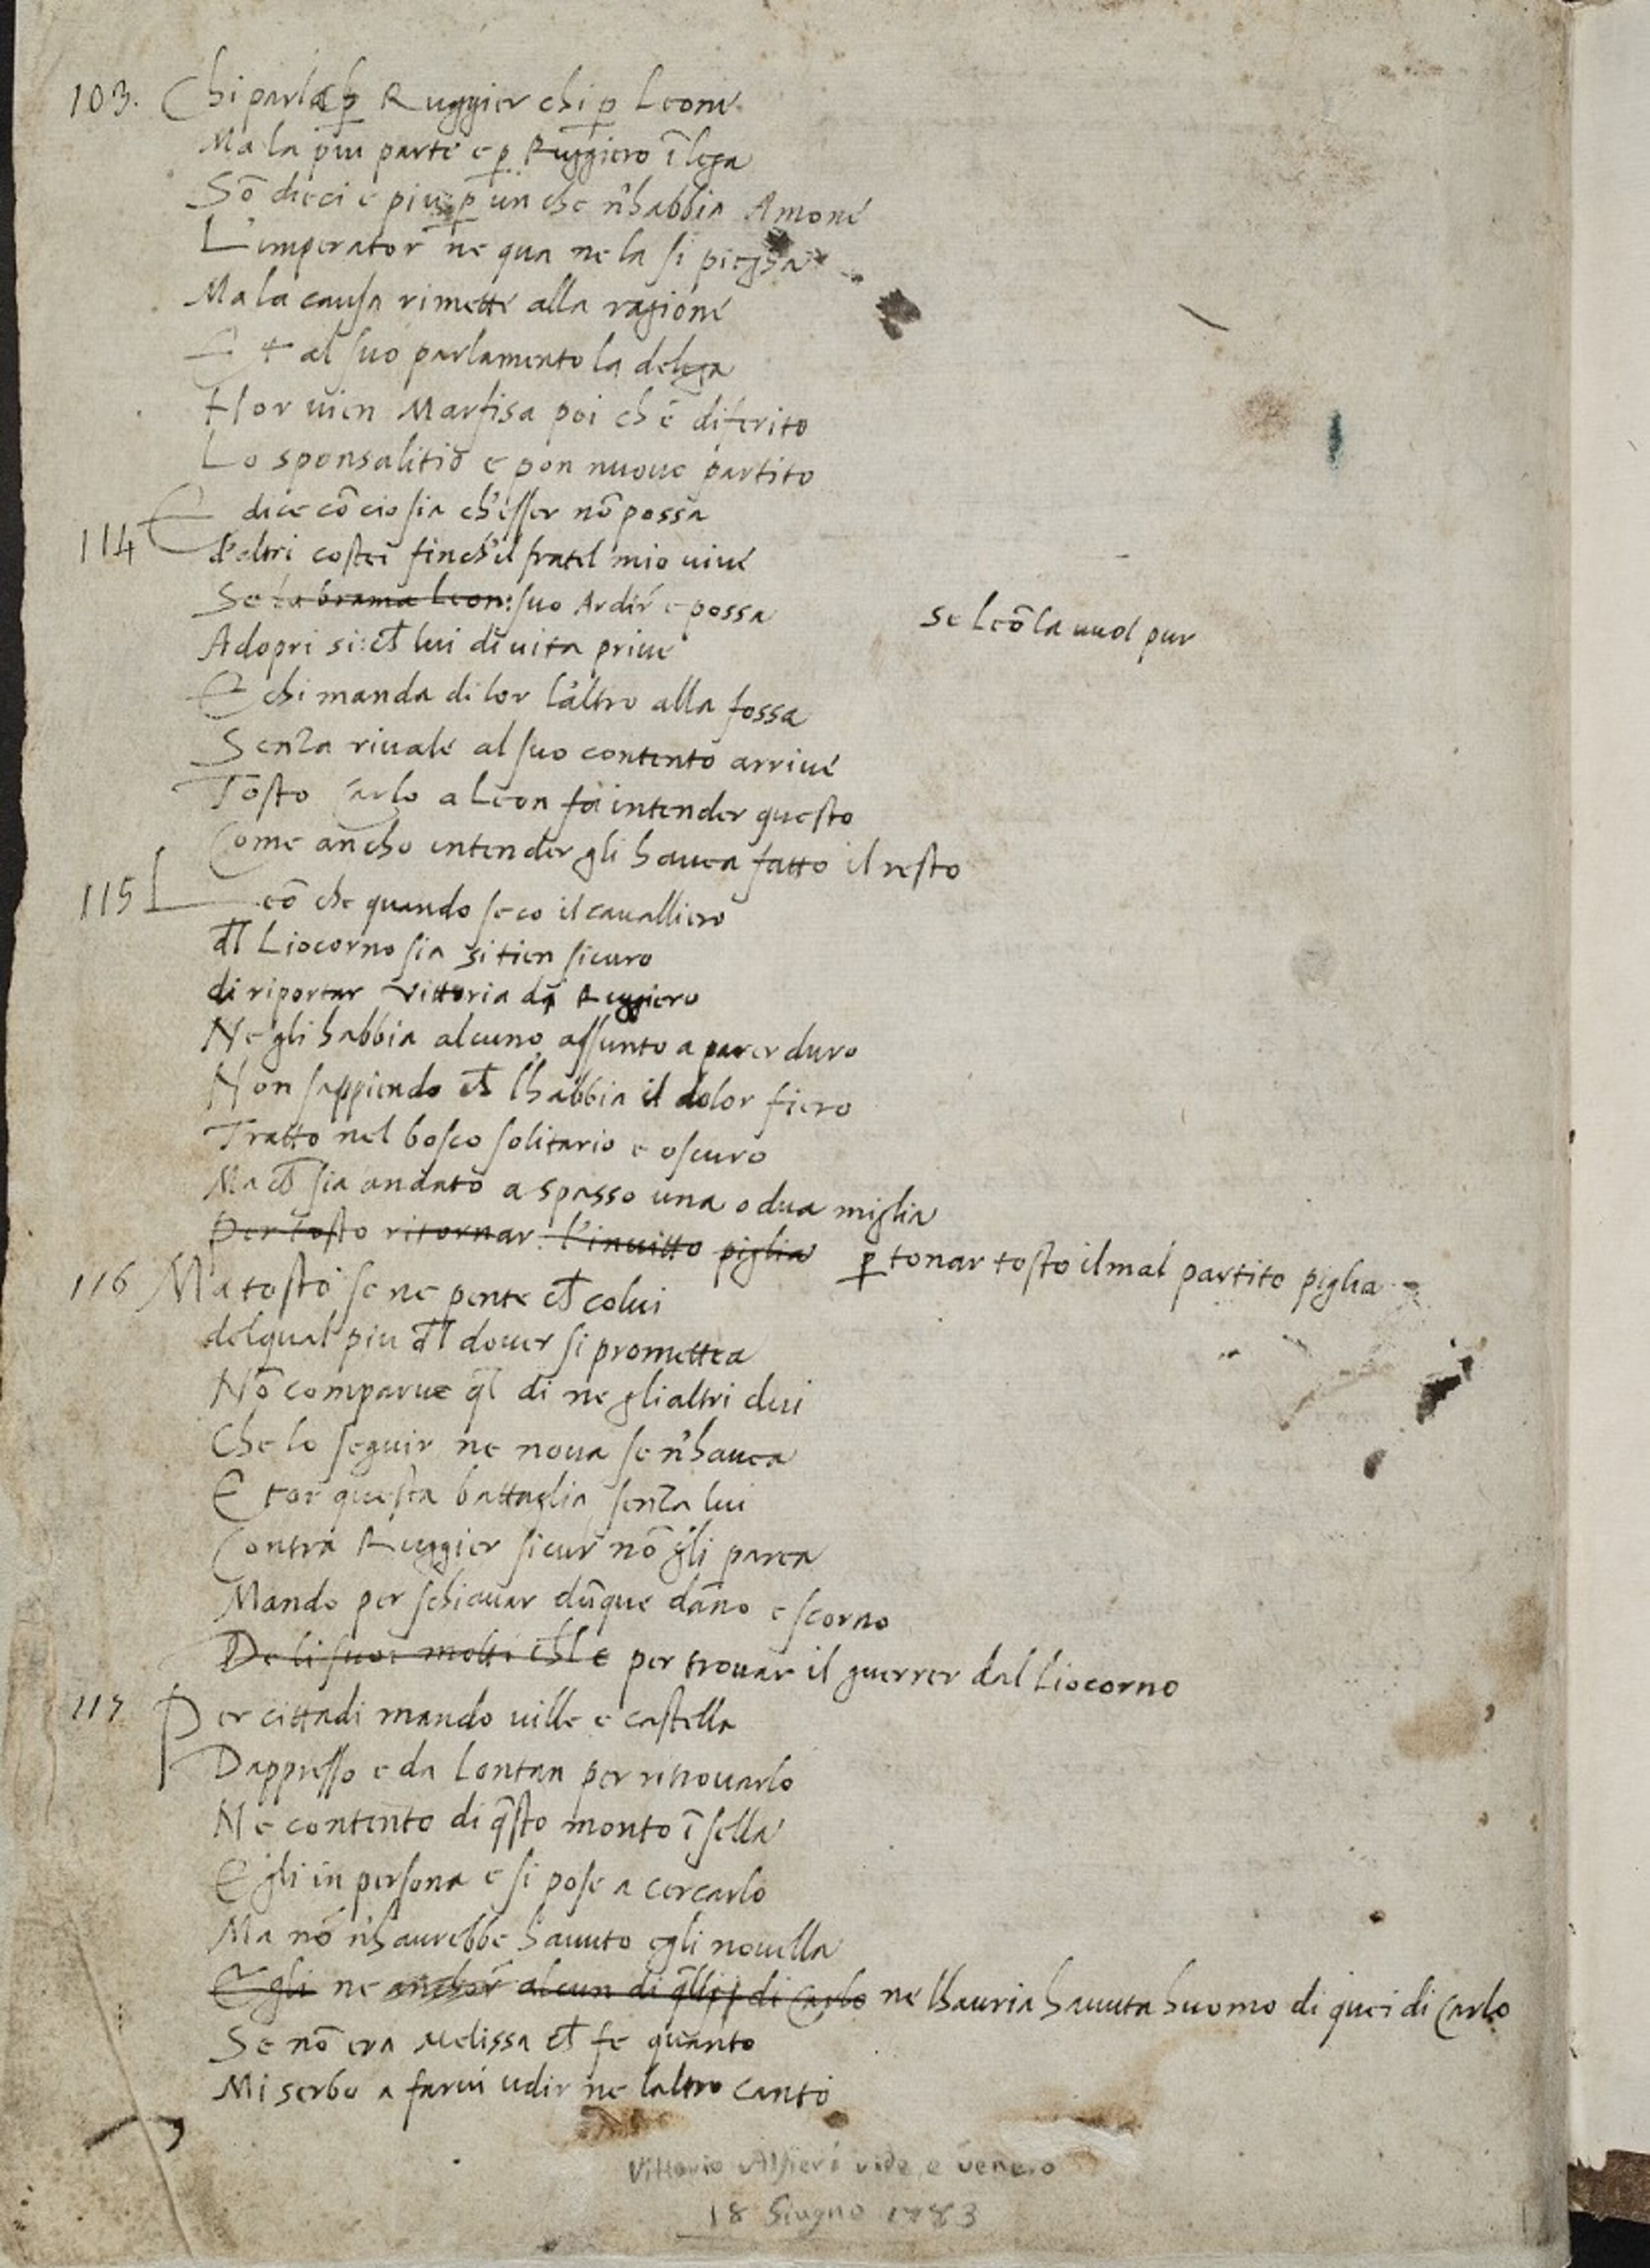 103. Chi parla ꝑ Ruggier chi ꝑ Leone
Ma la piu parte e ꝑ Ruggiero ĩ lega
Sõ dieci e piu ꝑ un che n'habbia Amone
L'imperator ne qua ne la si piega
Ma la causa rimette alla ragione
Et al suo parlamento la delega
Hor uien Marfisa poi ch'è diferito
Lo sponsalitio e pon nuouo partito
114 E dice cõciosia ch'esser nõ possa
d'altri costei finch'il fratel mio uiue
Se la brama Leon: suo Ardir e possa Se Leõ la uuol pur
Adopri si: ch̃ lui di uita priue
E chi manda di lor l'altro alla fossa
Senza riuale al suo contento arriue
Tosto Carlo a Leon fa intender questo
Come ancho intender gli hauea fatto il resto
115 Leõ che quando seco il caualliero
dl̃ Liocorno sia si tien sicuro
di riportar vittoria di Ruggiero
Ne gli habbia alcuno assunto a parer duro
Non sappiendo ch̃ l'habbia il dolor fiero
Tratto nel bosco solitario e oscuro
Ma ch̃ sia andato a spasso una o dua miglia
Per tosto ritornar: l'inuitto piglia ꝑ tonar tosto il mal partito piglia
116 Ma tosto se ne pente ch̃ colui
del qual piu dl̃ douer si promettea
Nõ comparue ql̃ di ne gli altri dui
Che lo seguir ne noua se n'hauea
E tor questa battaglia senza lui
Contra Ruggier sicur nõ gli parea
Mando per schiuar dũque dãno e scorno
De li suoi molti per trouar il guerrer dal Liocorno
117 Per cittadi mando uille e castella
Dappresso e da lontan per ritrouarlo
Ne contento di q̃sto monto ĩ sella
Egli in persona e si pose a cercarlo
Ma nõ n'haurebbe hauuto egli nouella
Egli ne anchor alcun di q̃lli di Carlo ne l'hauria hauuta huomo di quei di Carlo
Se nõ era Melissa ch̃ fe quanto
Mi serbo a farui udir ne l'altro canto
Vittorio Alfieri vide e venerò
18 Giugno 1783